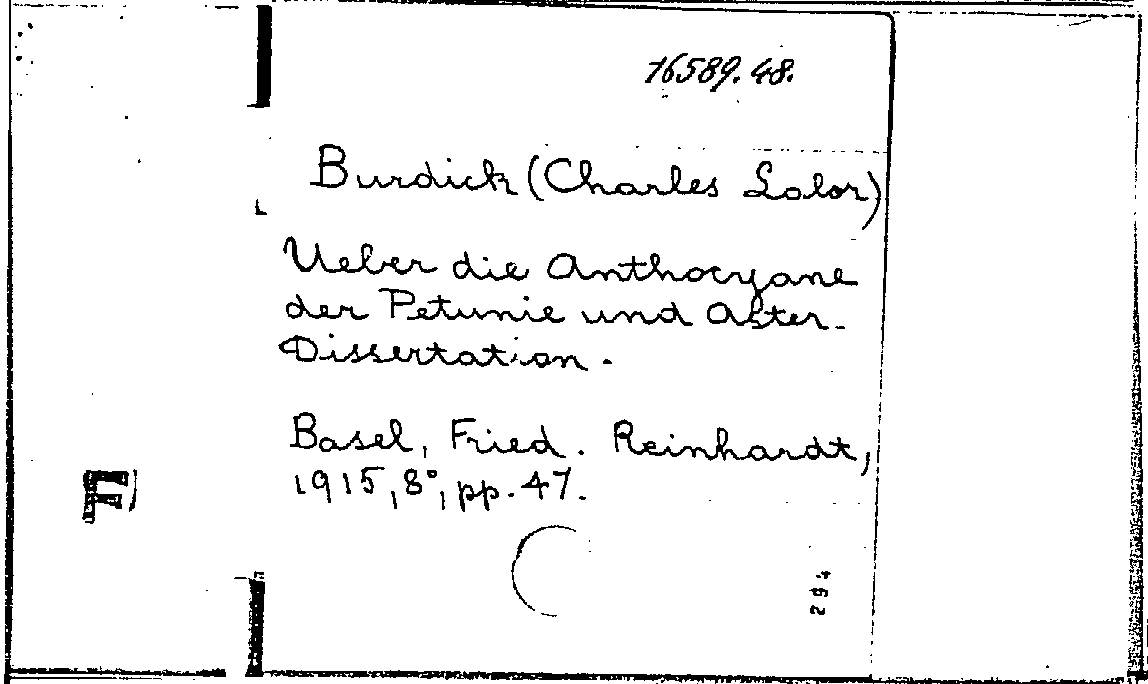 16589.48.
Burdick (Charles Lalor)
Ueber die Anthocyane
der Petunie und Aster.
Dissertation.
Basel, Fried. Reinhardt,
1915, 8°, pp. 47.
F)
294